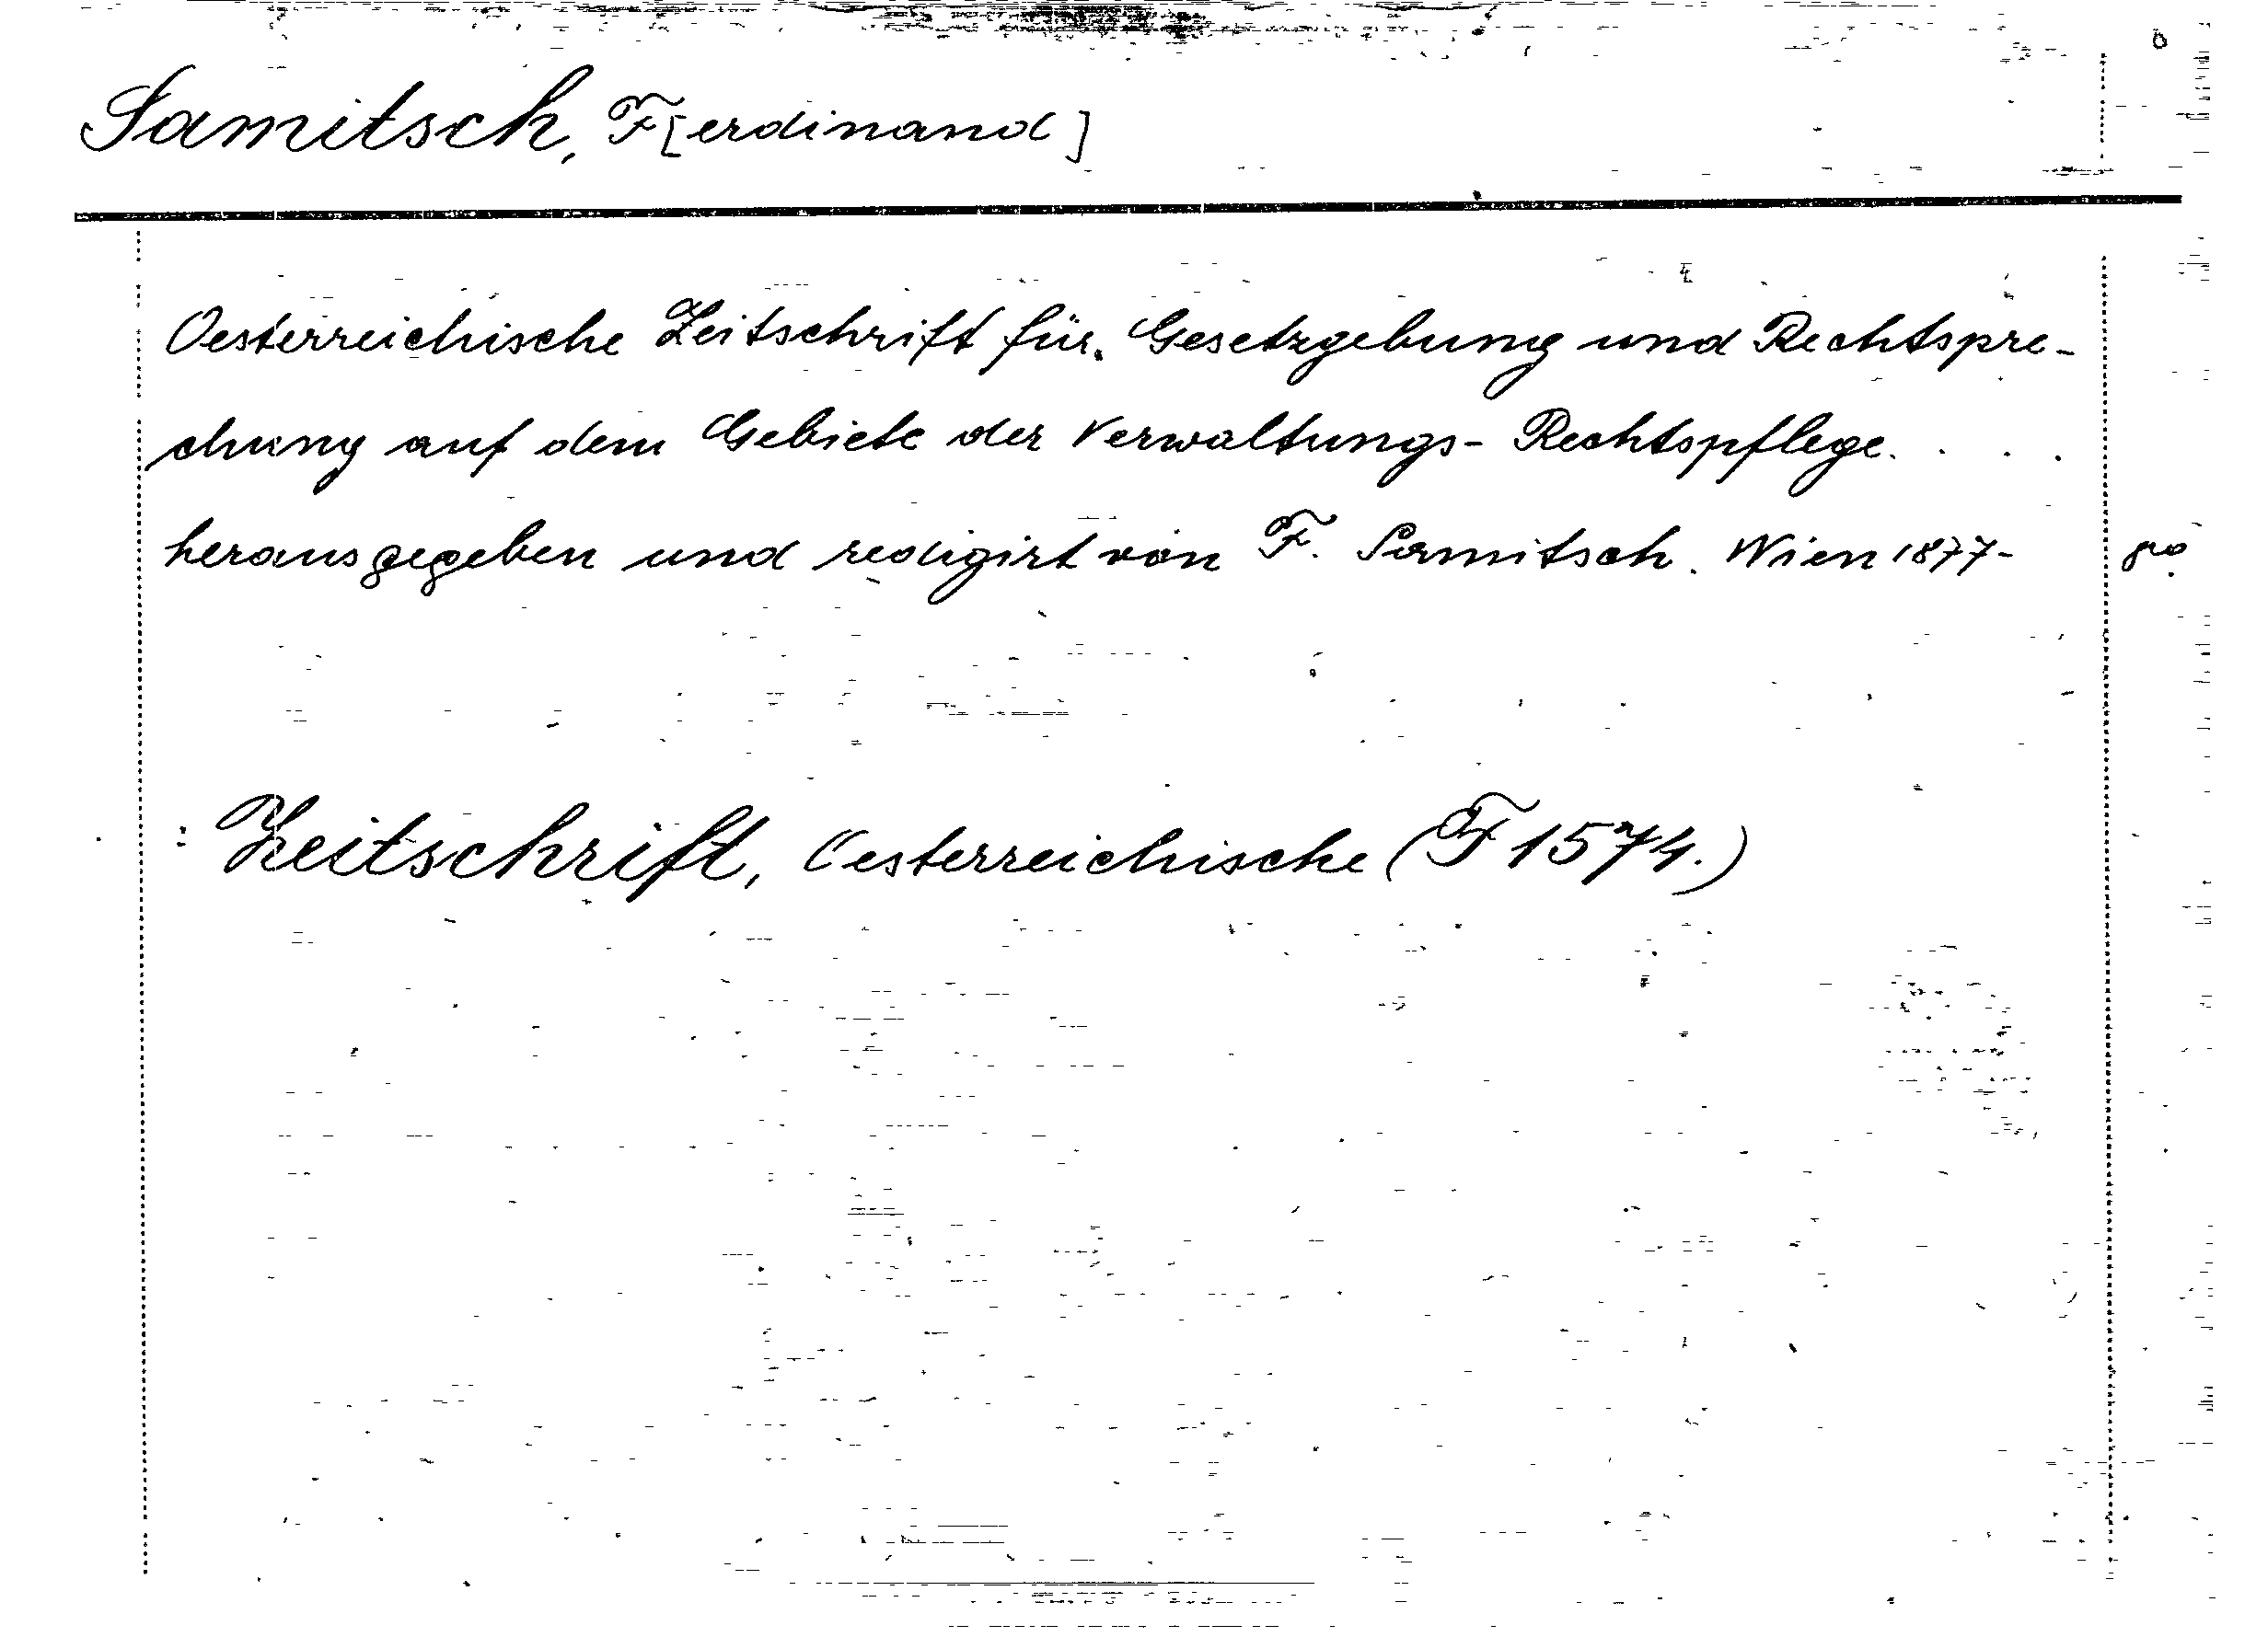 Samitsch, F[erdinand]
Oesterreichische Zeitschrift für Gesetzgebung und Rechtspre-
chung auf dem Gebiete der Verwaltungs-Rechtspflege. . . .
herausgegeben und redigirt von F. Samitsch. Wien 1877-
: Zeitschrift, Oesterreichische (F 1574.)